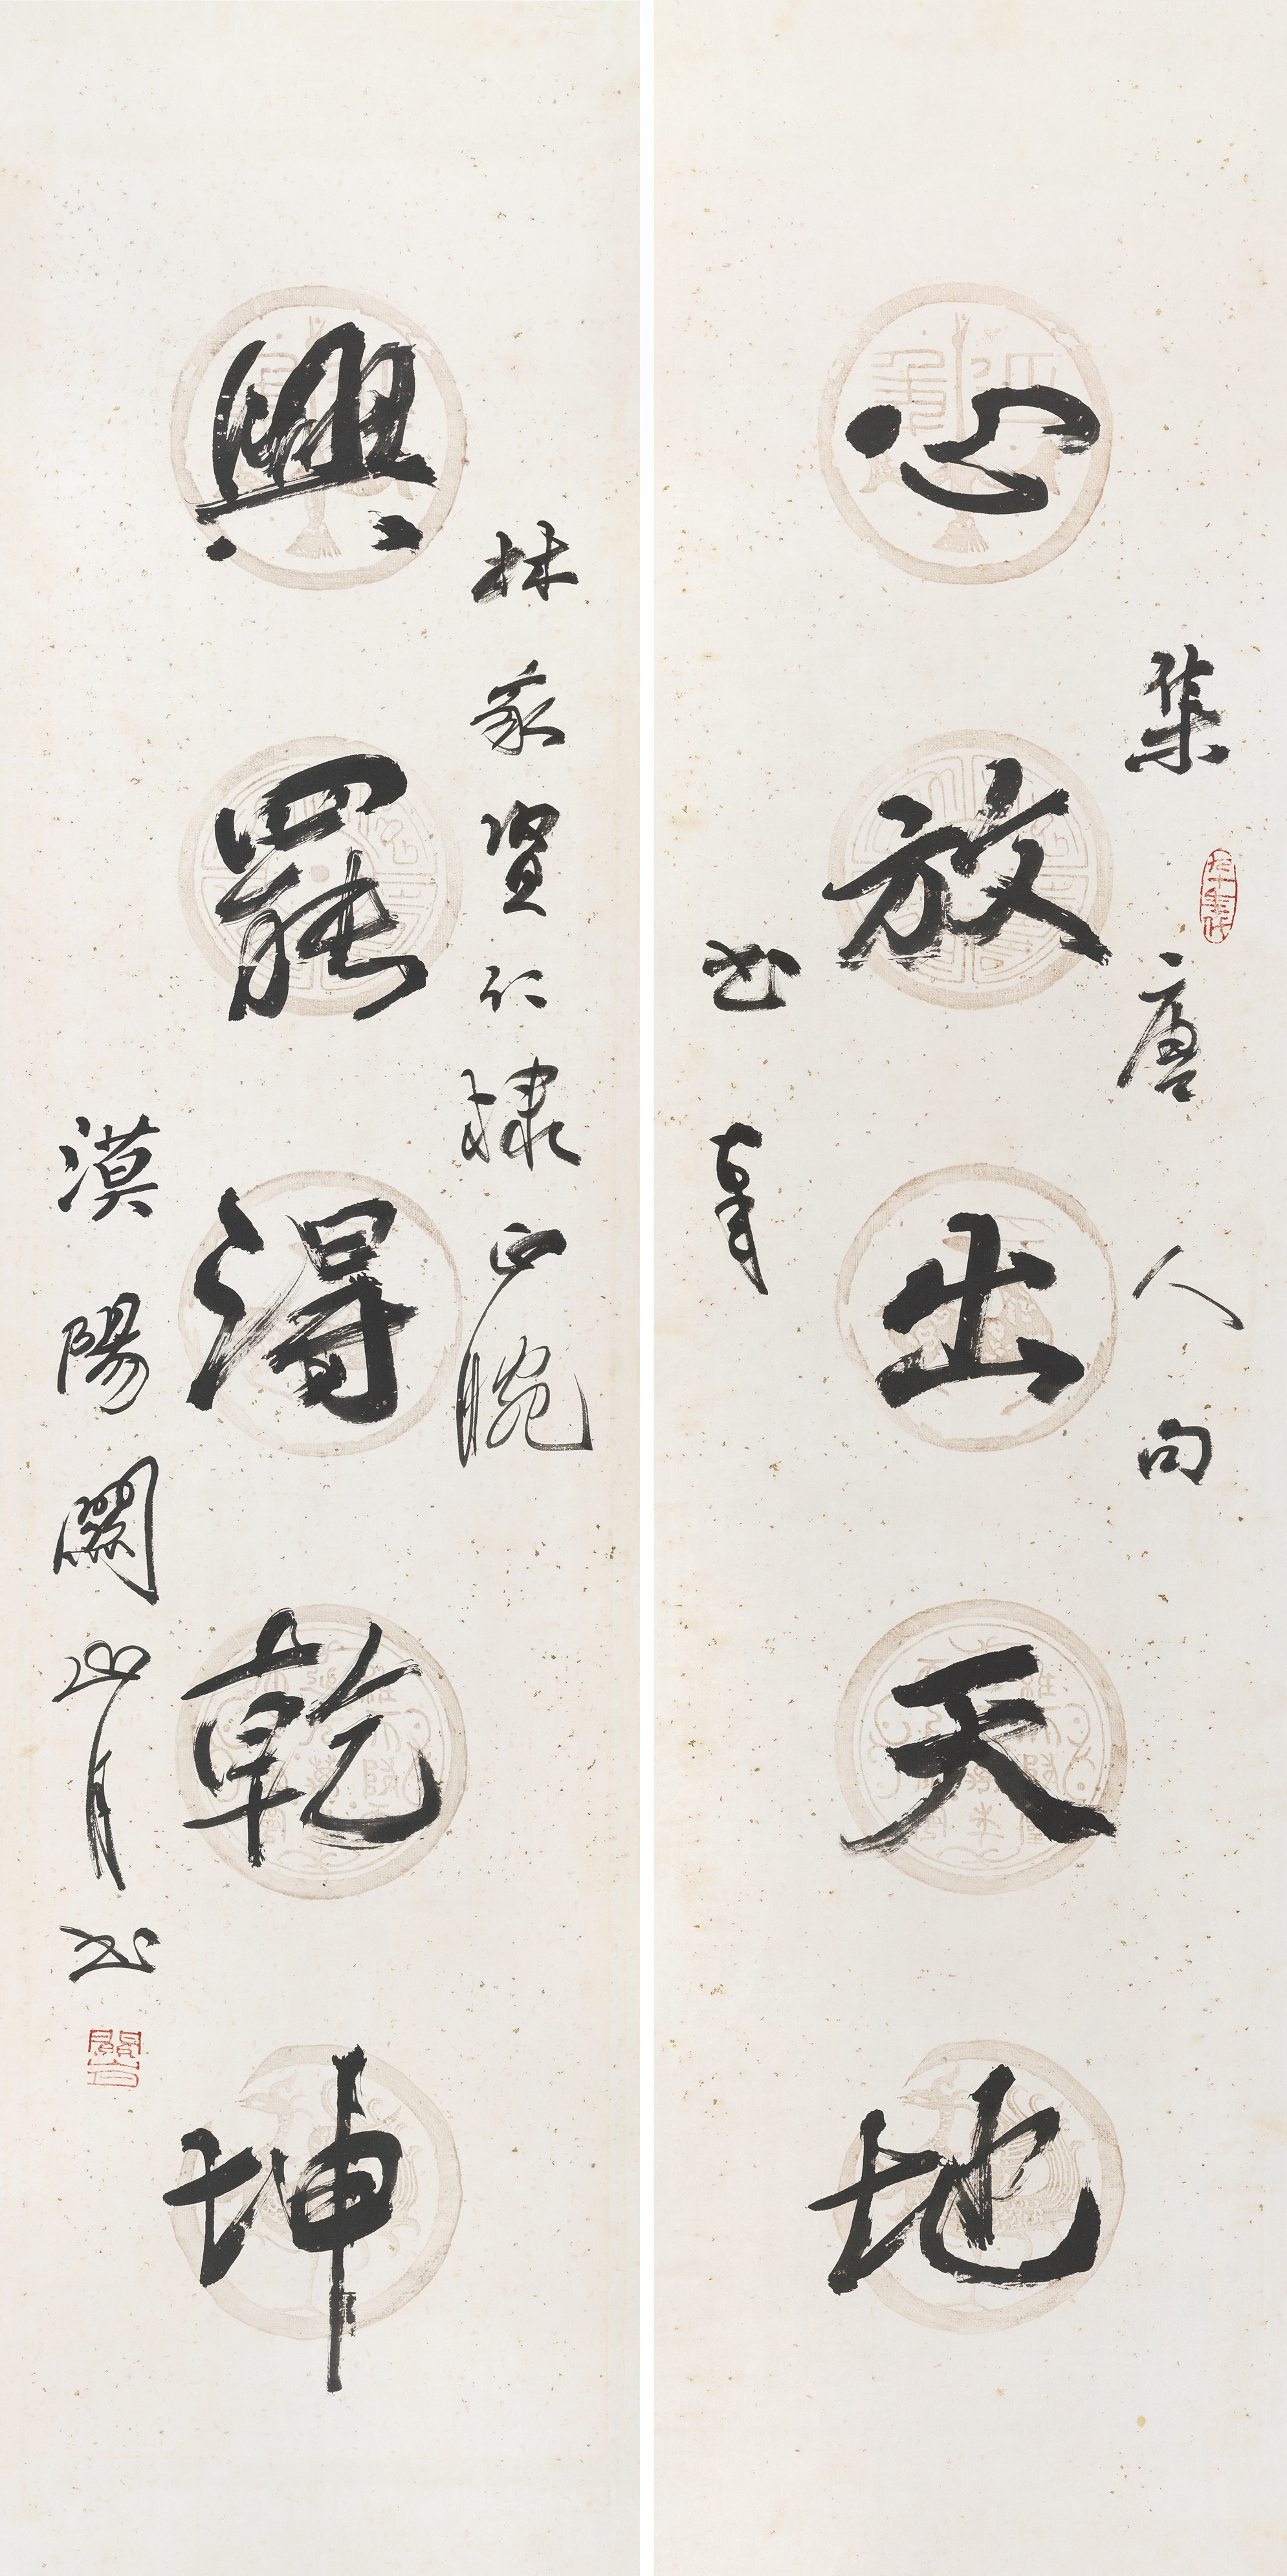 集唐人句
心放出天地
書奉
林家賢仁棣正腕
興罷得乾坤
漠陽關山月書